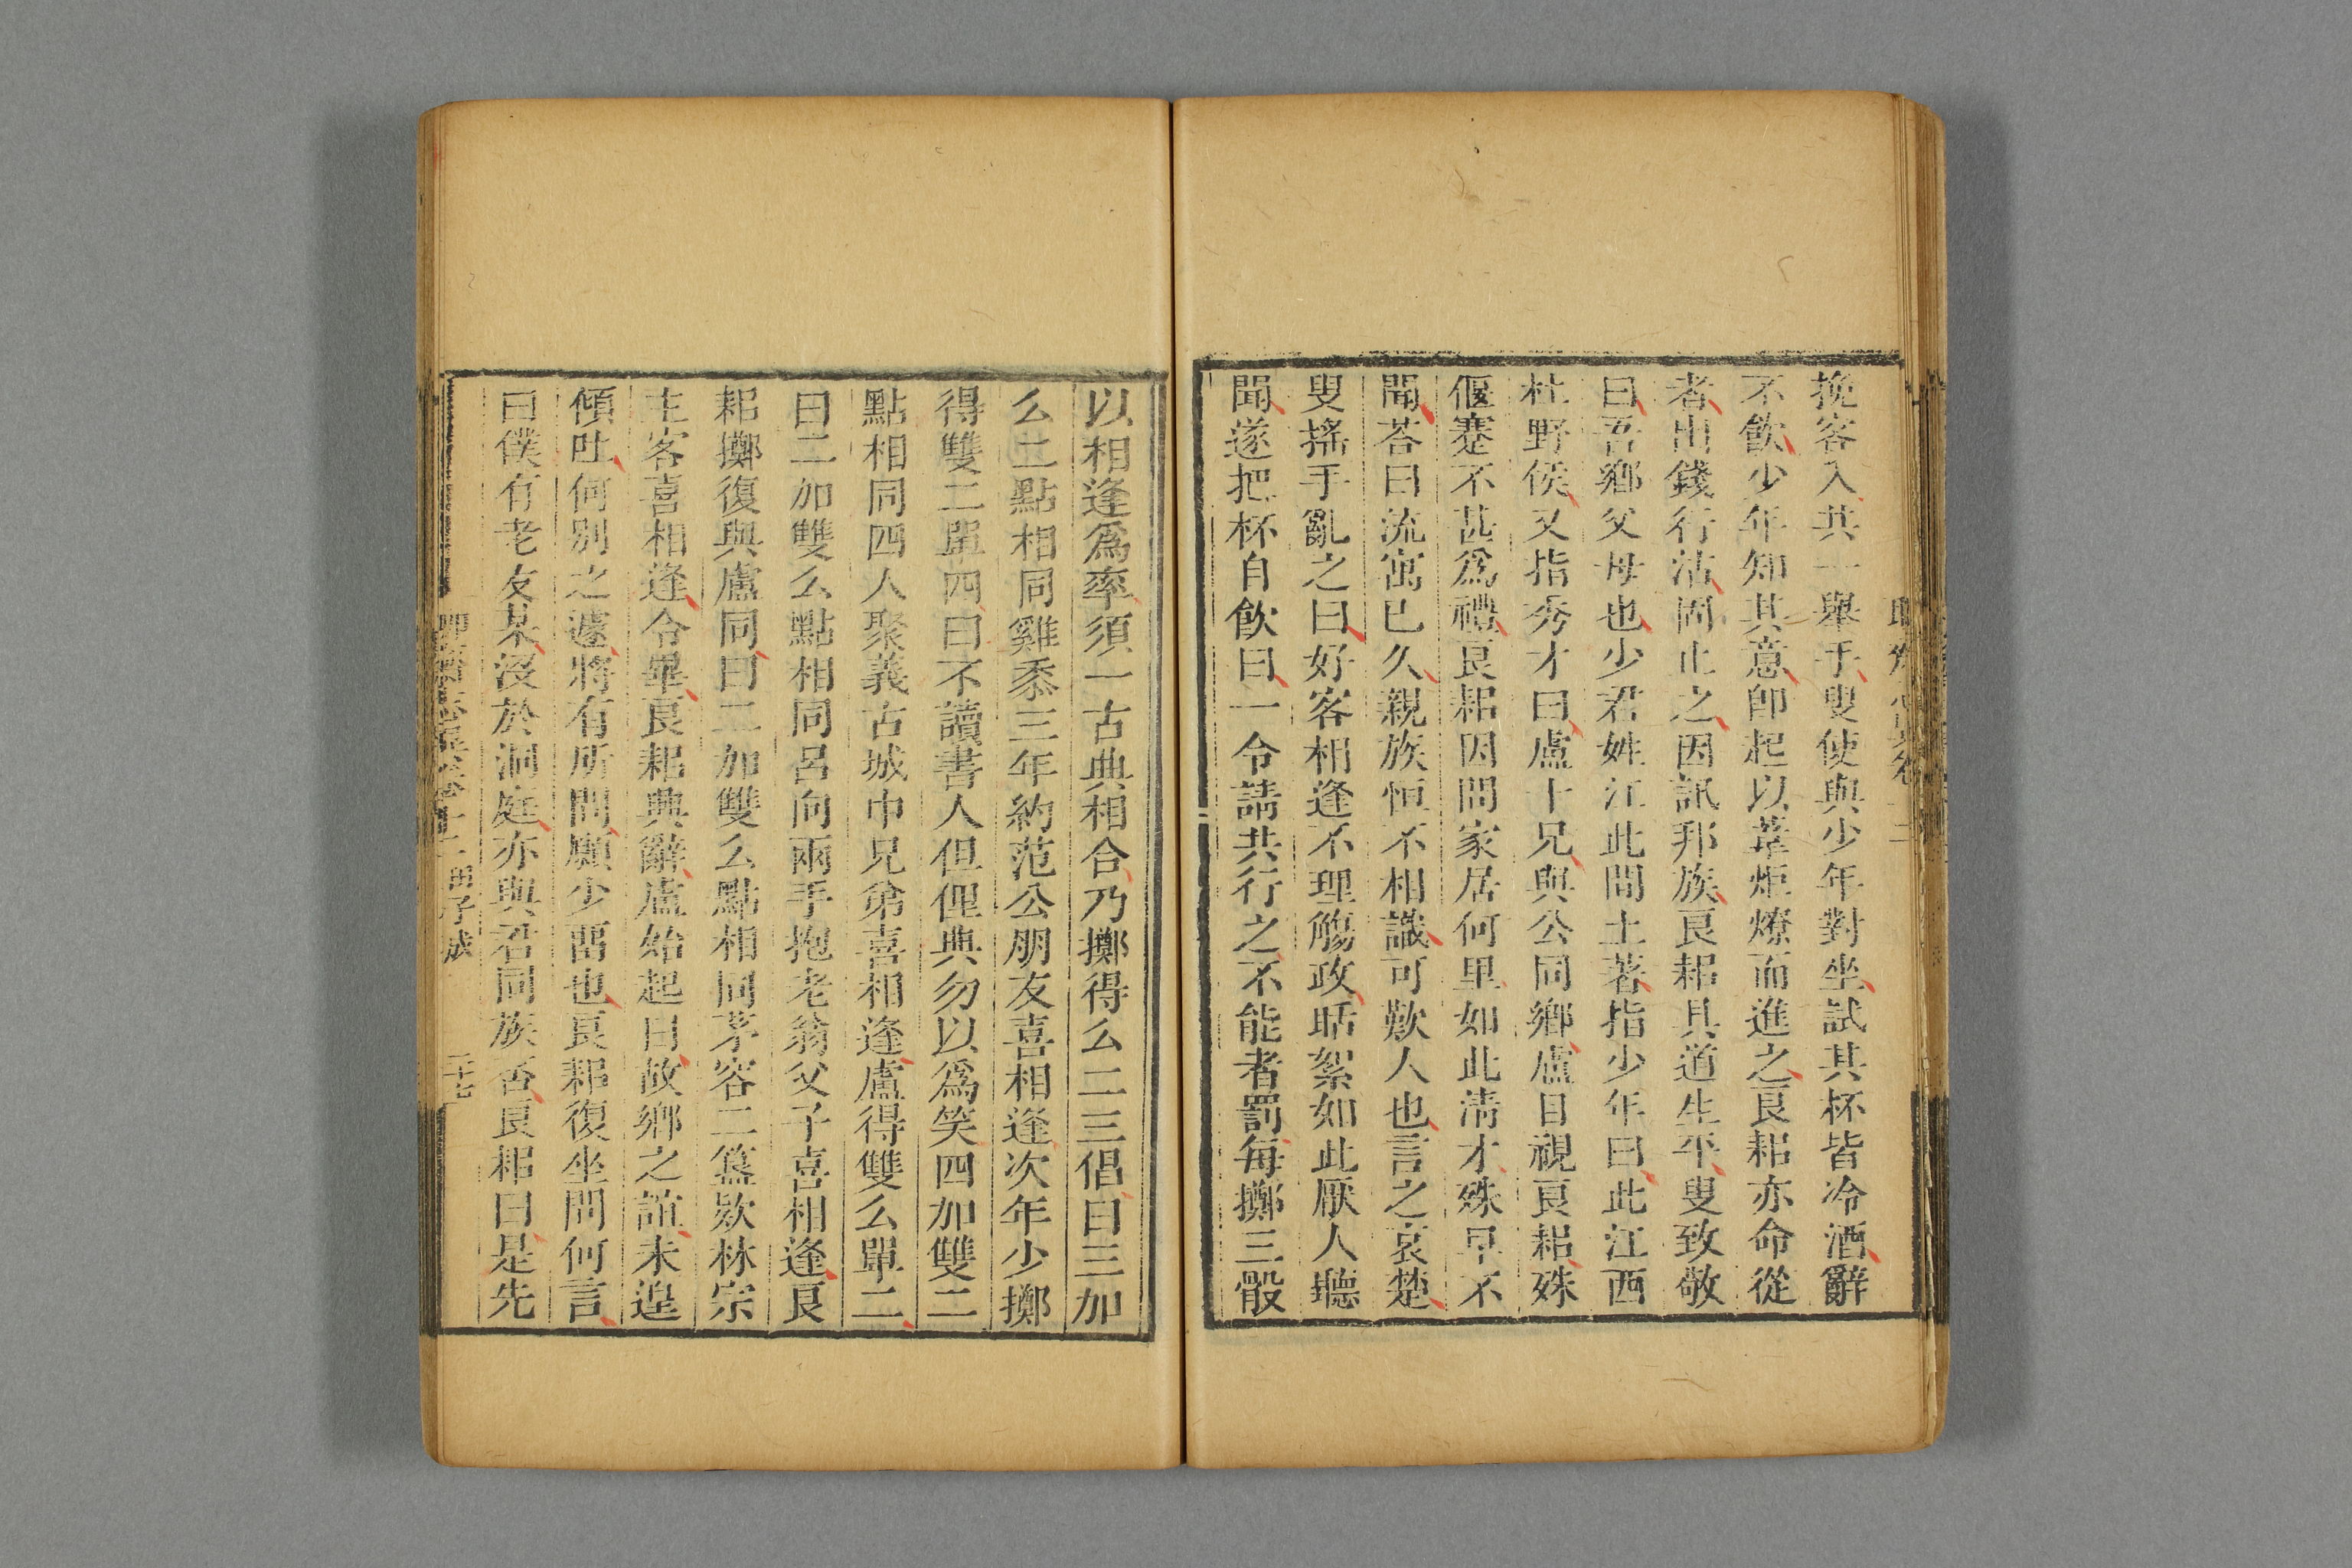 挽客入共一舉手叟使與少年對坐試其杯皆冷酒辭
不飲少年知其意卽起以葦炬燎而進之良耜亦命從
者出錢行沽固止之因訊邦族良耜具道生平叟致敬
曰吾鄉父母也少君姓江此間土著指少年曰此江西
杜野侯又指秀才曰盧十兄與公同鄉盧自視良耜殊
偃蹇不甚爲禮良耜因問家居何里如此清才殊早不
聞荅曰流寓已久親族恒不相識可歎人也言之哀楚
叟搖手亂之曰好客相逢不理觴政聒絮如此厭人聽
聞遂把杯自飲曰一令請共行之不能者罰每擲三骰
以相逢爲率須一古典相合乃擲得么二三倡曰三加
么二點相同雞黍三年約范公朋友喜相逢次年少擲
得雙二單四曰不讀書人但俚典勿以爲笑四加雙二
點相同四人聚義古城中兄弟喜相逢盧得雙么單二
曰二加雙么點相同呂向兩手抱老翁父子喜相逢良
耜擲復與盧同曰二加雙么點相同茅容二簋欵林宗
主客喜相逢令畢良耜興辭盧始起曰故鄉之誼未遑
傾吐何別之遽將有所問願少留也良耜復坐問何言
曰僕有老友某沒於洞庭亦與君同族否良耜曰是先
田子成
二十七